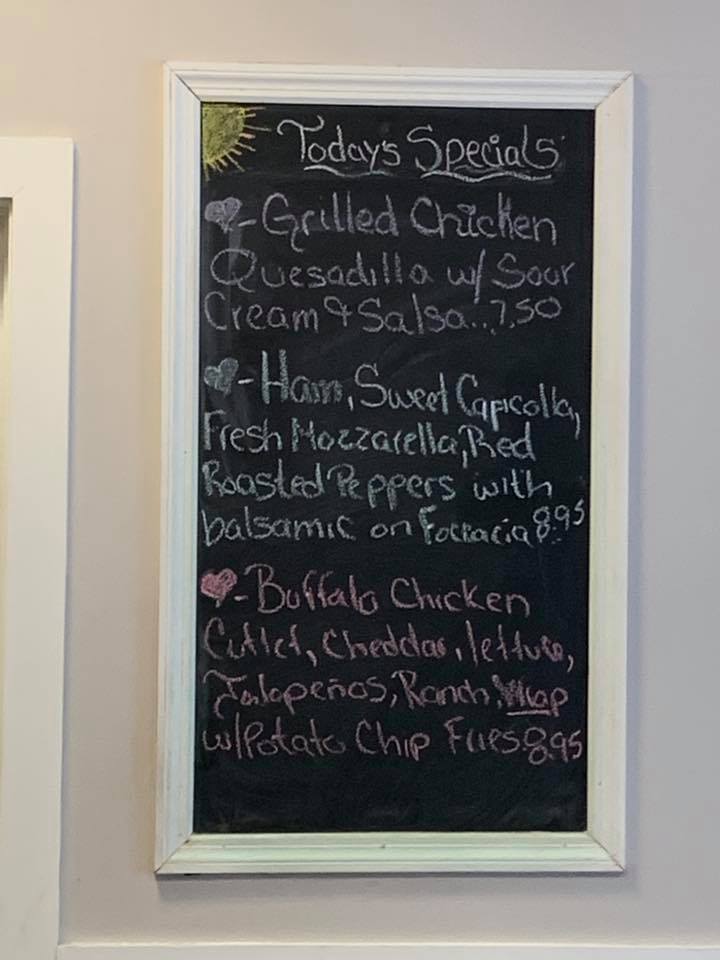 Today's Specials
- Grilled Chicken
Quesadilla w/ Sour
Cream & Salsa...7.50
- Ham, Sweet Capicolla,
Fresh Mozzarella, Red
Roasted Peppers with
balsamic on Foccacia 8.95
- Buffalo Chicken
Cutlet, Cheddar, lettuce,
Jalapeños, Ranch, Wrap
w/Potato Chip Fries.8.95